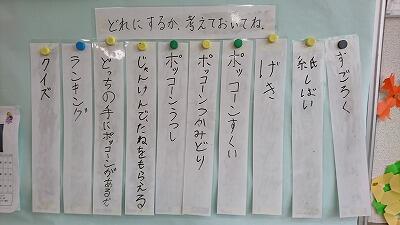 どれにするか、考えておいてね。
すごろく
紙しばい
げき
ポッコーンすくい
ポッコーンつかみどり
ポッコーンうつし
じゃんけんで、たねをもらえる
どっちの手にポッコーンがあるで
ランキング
クイズ